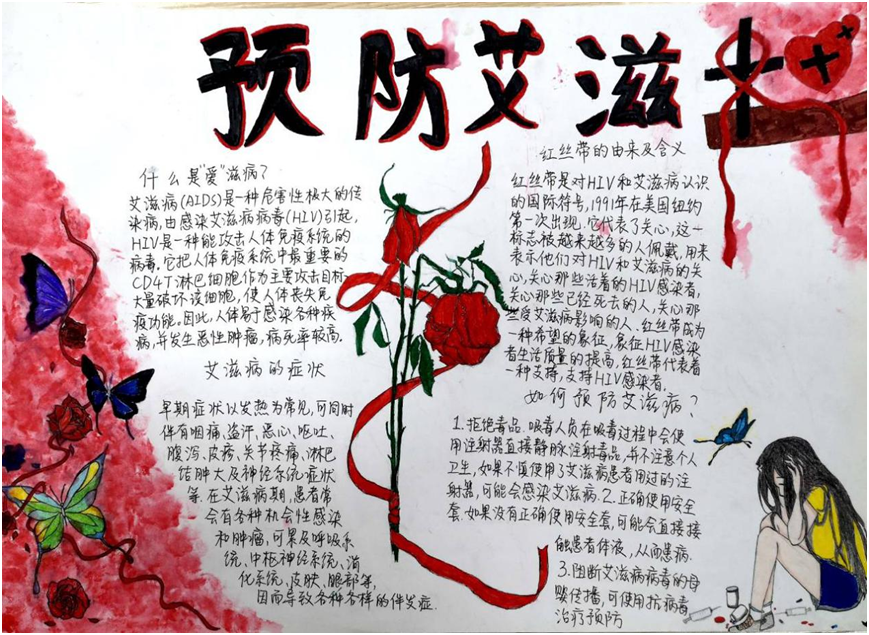 预防艾滋
什么是"爱"滋病?
艾滋病(AIDS)是一种危害性极大的传
染病,由感染艾滋病病毒(HIV)引起,
HIV是一种能攻击人体免疫系统的
病毒。它把人体免疫系统中最重要的
CD4T淋巴细胞作为主要攻击目标
大量破坏该细胞,使人体丧失免
疫功能。因此,人体易于感染各种疾
病,并发生恶性肿瘤,病死率较高。
艾滋病的症状
早期症状以发热为常见,可同时
伴有咽痛、盗汗、恶心、呕吐、
腹泻、皮疹、关节疼痛、淋巴
结肿大及神经系统症状
等。在艾滋病期,患者常
会有各种机会性感染
和肿瘤,可累及呼吸系
统、中枢神经系统、消
化系统、皮肤、眼部等,
因而导致各种各样的伴发症.
红丝带的由来及含义
红丝带是对HIV和艾滋病认识
的国际符号,1991年在美国纽约
第一次出现。它代表了关心,这一
标志被越来越多的人佩戴,用来
表示他们对HIV和艾滋病的关
心,关心那些活着的HIV感染者,
关心那些已经死去的人,关心那
些受艾滋病影响的人。红丝带成为
一种希望的象征,象征HIV感染
者生活质量的提高,红丝带代表着
一种支持,支持HIV感染者.
如何预防艾滋病?
1.拒绝毒品.吸毒人员在吸毒过程中会使
用注射器直接静脉注射毒品,并不注意个人
卫生,如果不慎使用了艾滋病患者用过的注
射器,可能会感染艾滋病.2.正确使用安全
套.如果没有正确使用安全套,可能会直接接
触患者体液,从而患病.
3.阻断艾滋病病毒的母
婴传播,可使用抗病毒
治疗预防